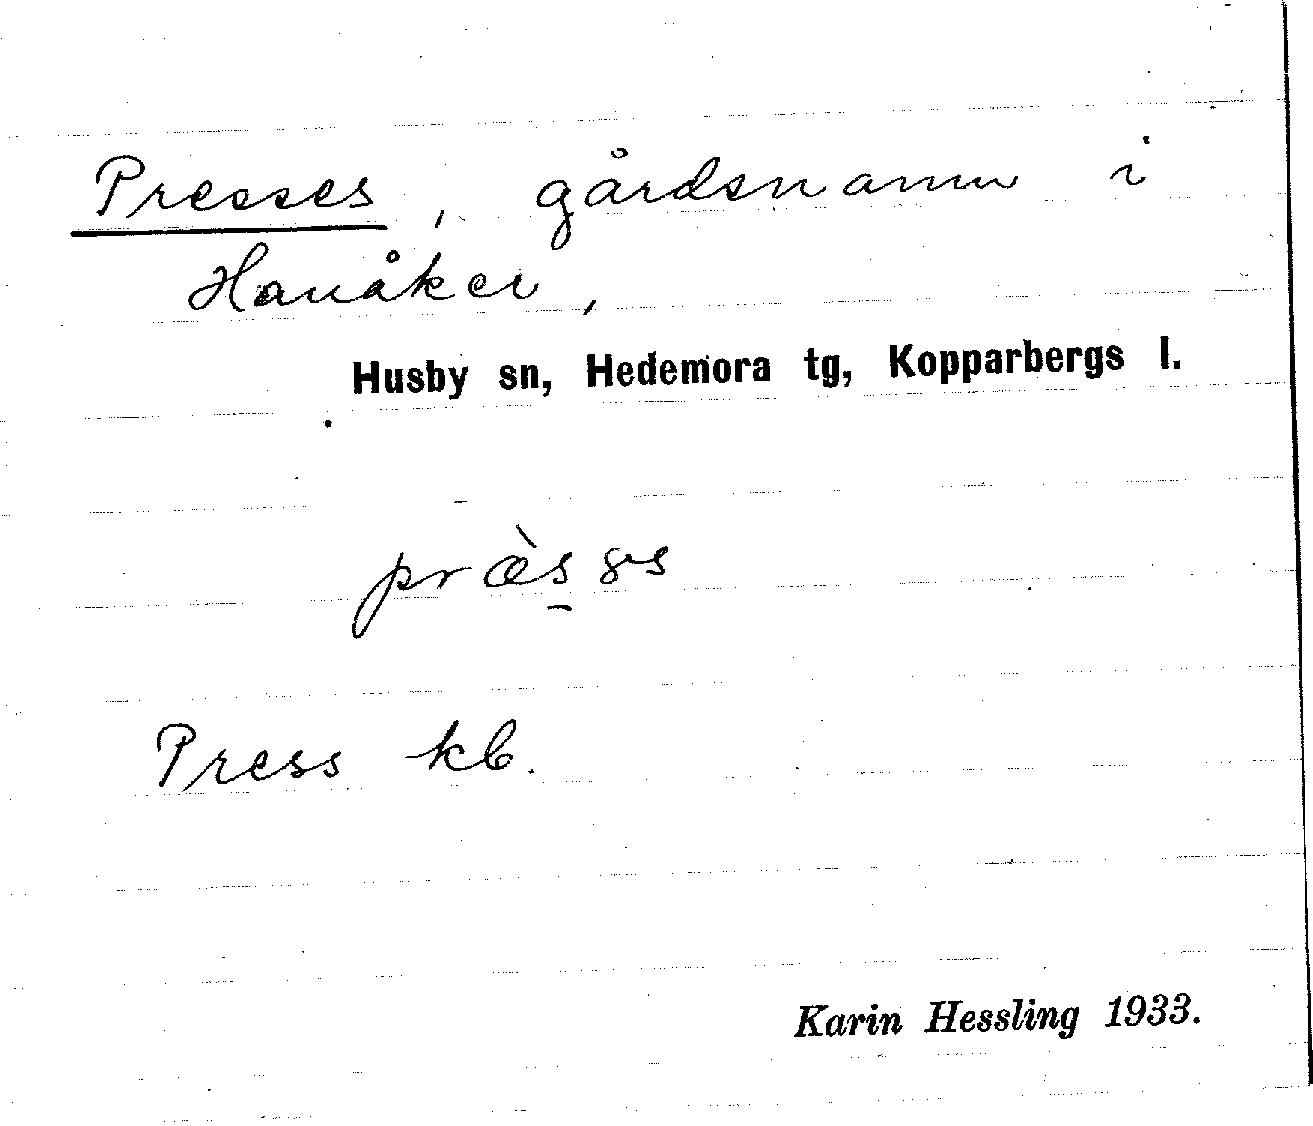 Presses, gårdsnamn i
Hanåker,
Husby sn, Hedemora tg, Kopparbergs l.
Press kb.
Karin Hessling 1933.